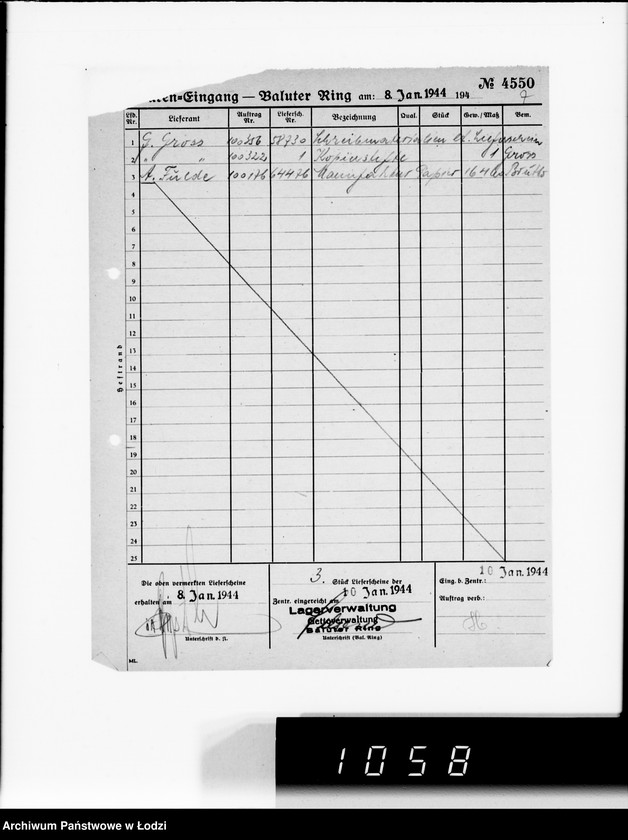 № 4550
ren-Eingang — Baluter Ring am: 8. Jan. 1944 194
Lfd. Nr. Lieferant Auftrag Nr. Liefersch. Nr. Bezeichnung Qual. Stück Gew./Maß Bem.
1 G. Gross 100256 58730 Schreibmaterialien lt. Lieferschein
2 " " 100322 1 Kopierstifte 1 Gross
3 A. Fuede 100176 64476 Papier 1646 Brutto
4
5
6
7
8
9
10
11
12
13
14
15
16
17
18
19
20
21
22
23
24
25
Heftrand
Die oben vermerkten Lieferscheine
erhalten am 8. Jan. 1944
Unterschrift d. fl.
3. Stück Lieferscheine der
Zentr. eingereicht am 10 Jan. 1944
Lagerverwaltung
Gettoverwaltung
Baluter Ring
Unterschrift (Bal. Ring)
10 Jan. 1944
Eing. b. Zentr.:
Auftrag verb.:
ML.
1058
Archiwum Państwowe w Łodzi